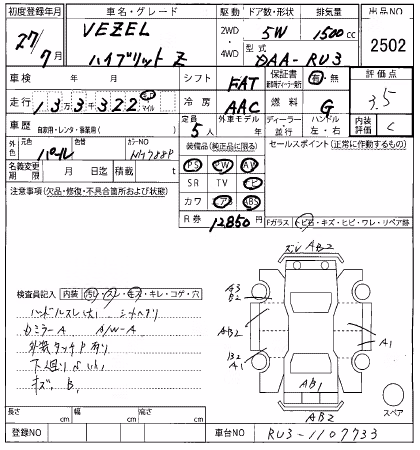 初度登録年月 車名・グレード 駆動 ドア数・形状 排気量 出品NO
27/7月 VEZEL ハイブリット Z 2WD・4WD 5W 1500cc 2502
型式 DAA-RU3
車検 年 月 シフト FAT 保証書 有・無 評価点
走行 133,322 km マイル 冷房 AAC 燃料 G 3.5
車歴 自家用・レンタ・事業用( ) 定員 5人 外車モデル年 ディーラー・並行 ハンドル 左・右 内装評価 C
外色 元色 パール 色替 カラーNO NH788P 装備品(純正品に限る) セールスポイント(正常に作動するもの)
名義変更期限 月 日迄 積載 t PS PW AW
SR TV ナビ
注意事項(欠品・修復・不具合箇所および状態) カワ エアB ABS
R券 12850円 Fガラス トビ石・キズ・ヒビ・ワレ・リペア跡
検査員記入 内装 汚レ・スレ・モス・キレ・コゲ・穴
ハンドルスレ(大) シートヘタリ
カミラーA A/W-A
外装タッチP有り
下廻りサビ、
キズ、B、
ズレ AB2
A3 B2
AB2
B2 A1
A1
AB1
AB2
スペア
長さ cm 幅 cm 高さ cm
登録NO 車台NO RU3-1107733